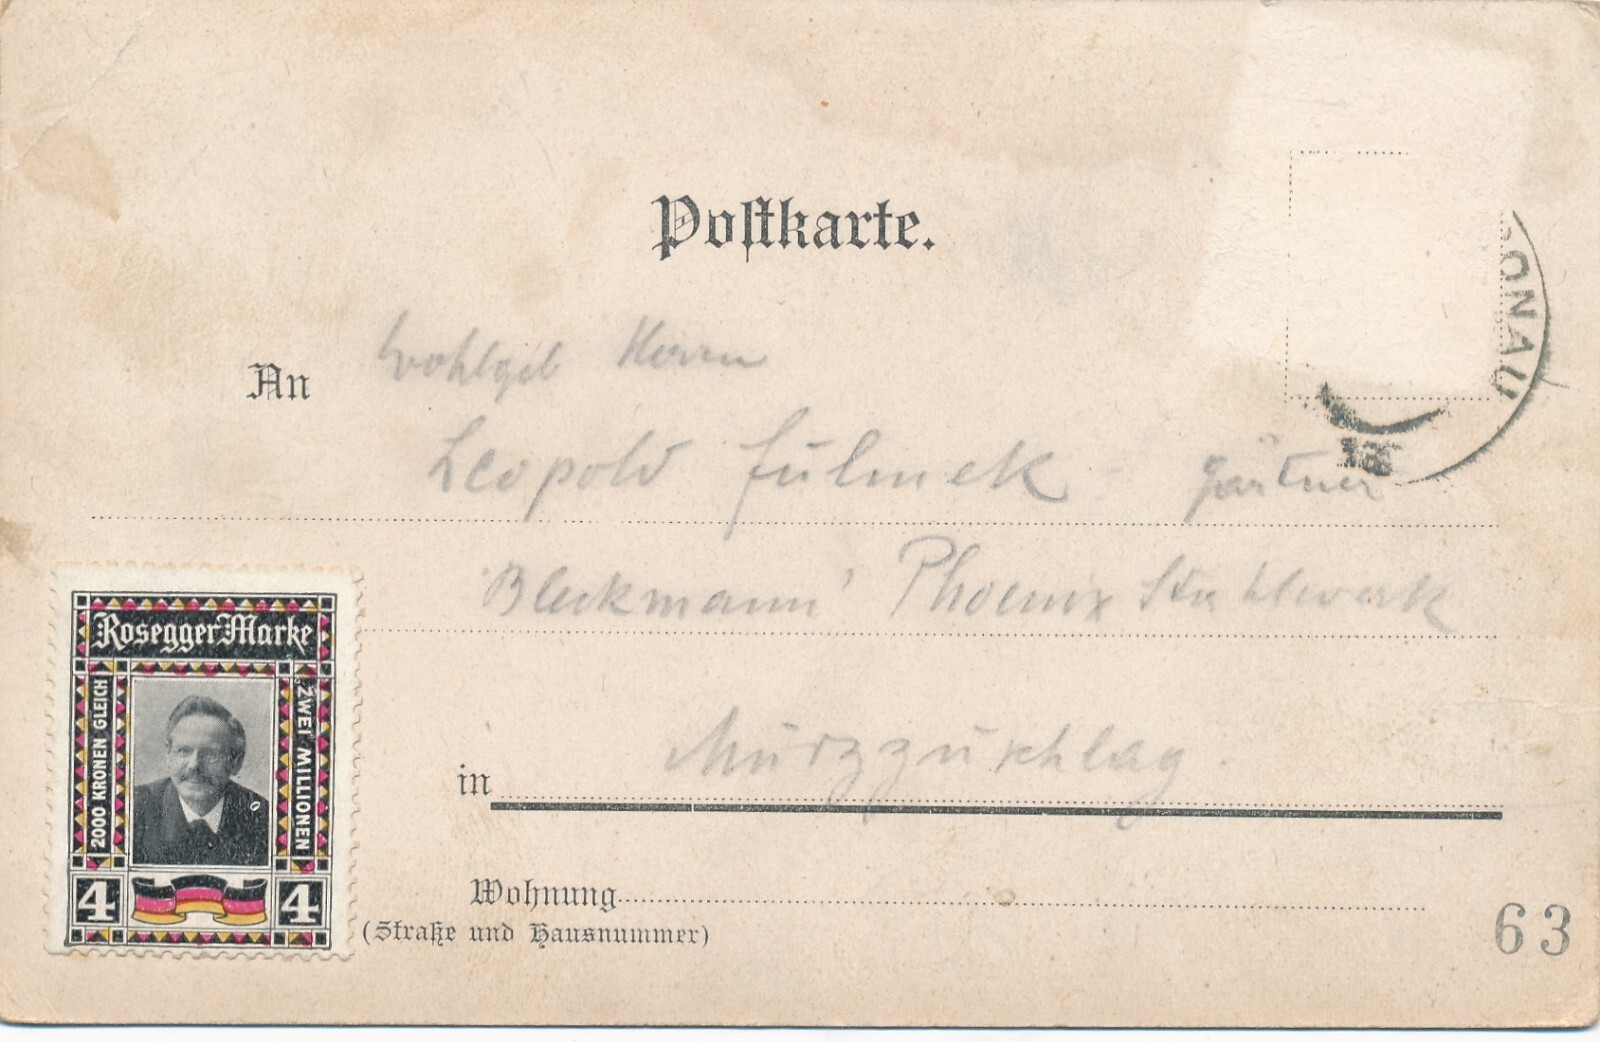 Postkarte.
ONAU
An Wohlgeb Herrn
Leopold Fülmek - Gärtner
Bleckmann' Phoenix Stahlwerk
in Mürzzuschlag
Wohnung
(Straße und Hausnummer)
63
Rosegger Marke
2000 KRONEN GLEICH
„ZWEI MILLIONEN
4 4